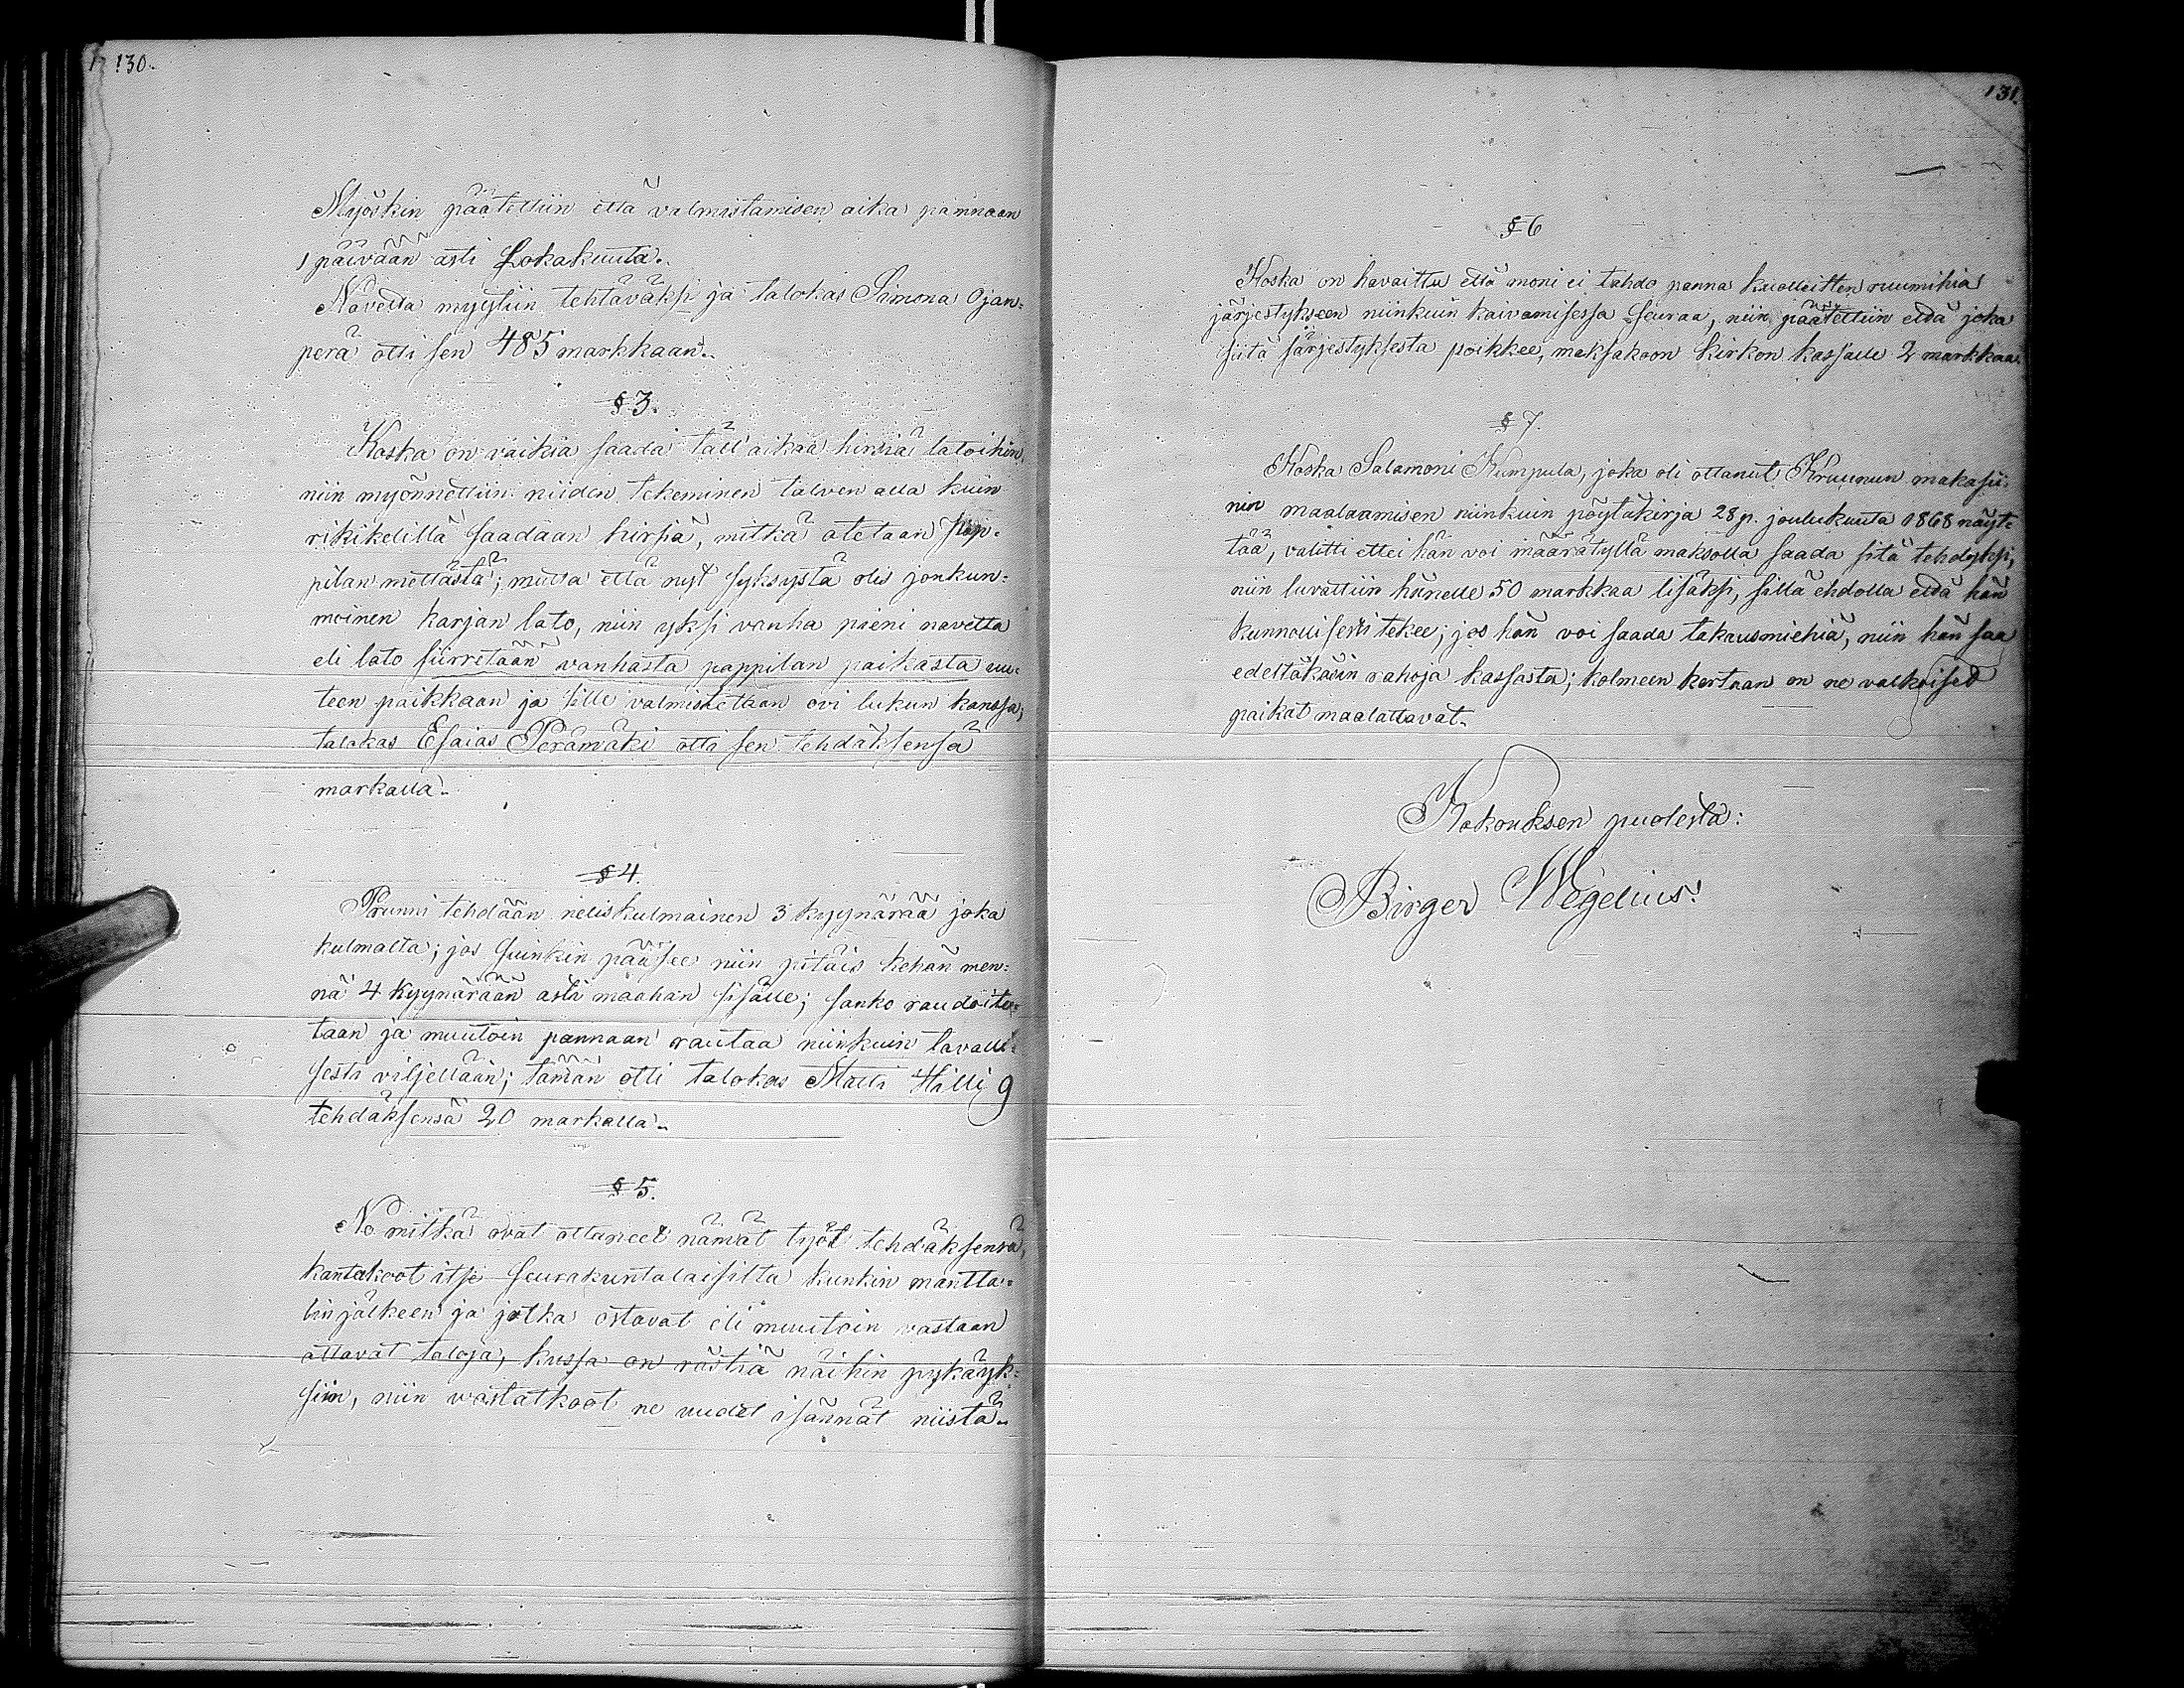 130.
Myöskin päätettiin että valmistamisen aika pannaan
1 päivään asti Lokakuuta.
Navetta myytiin tehtäväksi ja talokas Simona Ojan=
perä otti sen 485 markkaan.
§ 3.
Koska on vaikia saada täll' aikaa hirsiä latoihin,
niin myönnettiin niiden tekeminen talven alla kuin
rikikelillä saadaan hirsiä, mitkä otetaan pap=
pilan mettästä; mutta että nyt syksystä olis jonkun=
moinen karjan lato, niin yksi vanha pieni navetta
eli lato siirretään vanhasta pappilan paikasta uu=
teen paikkaan ja sille valmistetaan ovi lukun kanssa;
talokas Esaias Perämäki otti sen tehdäksensä
markalla.
§ 4.
Prunni tehdään neliskulmainen 3 kyynärää joka
kulmalta; jos suinkin pääsee niin pitäis kehän men=
nä 4 kyynärään asti maahan sisälle; sanko raudoite=
taan ja muutoin pannaan rautaa niinkuin tavalli=
sesti viljellään; tämän otti talokas Matti Hilli 9
tehdäksensä 20 markalla.
§ 5.
Ne mitkä ovat ottaneet nämät työt tehdäksensä,
kantakoot itse seurakuntalaisilta kunkin mantta=
lin jälkeen ja jotka ostavat eli muutoin vastaan
ottavat taloja, kussa on rästiä näihin pykäyk=
siin, niin vastatkoot ne uudet isännät niistä.
131.
§ 6
Koska on havaittu että moni ei tahdo panna kuolleitten ruumihia
järjestykseen niinkuin kaivamisessa seuraa, niin päätettiin että joka
siitä järjestyksestä poikkee, maksakoon kirkon kassalle 2 markkaa.
§ 7.
Koska Salamoni Kumpula, joka oli ottanut Kruunun makasii=
nin maalaamisen niinkuin pöytäkirja 28 p. joulukuuta 1868 näyt=
tää, valitti ettei hän voi määrätyllä maksolla saada sitä tehdyksi,
niin luvattiin hänelle 50 markkaa lisäksi, sillä ehdolla että hän
kunnollisesti tekee; jos hän voi saada takausmiehiä, niin hän saa
edeltäkäsin rahoja kassasta; kolmeen kertaan on ne valkoiset
paikat maalattavat.
Kokouksen puolesta:
Birger Wegelius.